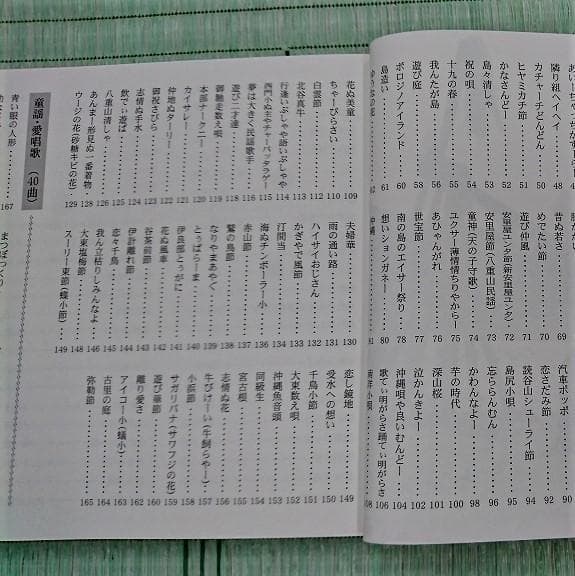 隣り組ヘイヘイ 48
カチャーチどんどん 50
ヒヤミカチ節 51
かなさんどー 52
島々清しゃ 53
祝の唄 54
十九の春 55
我んたが島 56
遊び庭 58
ボロジノアイランド 60
島造い 61
昔ぬ若さ 69
めでたい節 70
遊び仲風 71
安里屋ユンタ節(新安里屋ユンタ) 72
安里屋節(八重山民謡) 73
童神(天の子守歌) 74
ユクサー薄情情ちりやからー 75
あひゃんがれ 76
世宝節 77
南の島のエイサー祭り 78
想いションガネー 80
汽車ポッポ 90
恋さだみ節 92
読谷山シューライ節 94
島尻小唄 95
忘ららんむん 96
かわんなよー 98
芋の時代 100
深山桜 101
泣かんきよー 102
沖縄唄や良いむんどー 104
歌てぃ明がらさ踊てぃ明がらさ 106
花ぬ美童 109
ちゃーびらさい 110
白雲節 112
北谷真牛 113
行逢いぶしゃや語いぶしゃや 114
西門小ぬ主のチャーバッタラゲー 115
夢は大きく民謡歌手 116
遊び二才達 118
御馳走数え唄 119
本部ナークニー 120
カイサレー 121
仲地ぬターリー 122
御祝さびら 123
志情ぬ手水 124
飲でぃ遊ば 125
八重山清しゃ 126
あんまー形見ぬ一番着物 128
ウージの花(砂糖キビの花) 129
夫婦華 130
雨の通い路 131
ハイサイおじさん 132
かぎやで風節 133
汀間当 134
海ぬチンボーラー小 136
赤山節 137
鷲の鳥節 138
なりやまあやぐ 139
とぅばらーま 140
伊良部とぅがに 141
花ぬ風車 142
谷茶前節 143
伊計離れ節 144
恋々千鳥 145
我ん立枯りしみんなよ 146
大東塩梅節 148
スーリー東節(蝶小節) 149
恋し鏡地 149
受水への想い 150
千鳥小節 151
大東数え唄 152
沖縄魚音頭 153
同級生 154
宮古根 155
志情ぬ花 156
牛びけーい(牛飼らやー) 157
小浜節 158
サガリバナ(サワフジの花) 159
遊び華節 160
離り愛さ 162
アイコー小(蟻小) 163
古里の庭 164
弥勒節 165
童謡・愛唱歌(40曲)
青い眼の人形 167
まつぼっくり